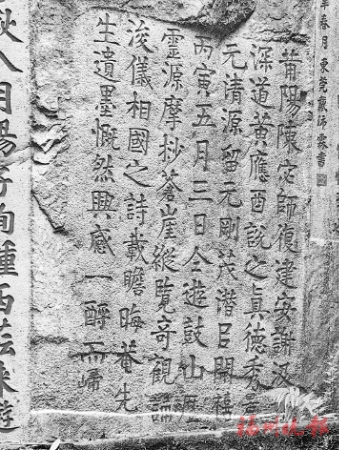 春月東莞戴泳霖書
莆陽陳宓師復建安謝汲
深道黃應酉說之真德秀
元清源留元剛茂潛㠯開禧
丙寅五月三日仝遊鼓山
靈源摩抄蒼崖縱覽奇觀誦
浚儀相國之詩載瞻晦菴先
生遺墨慨然興感一酹而歸
秋八月陽種西來遊
福州晚报